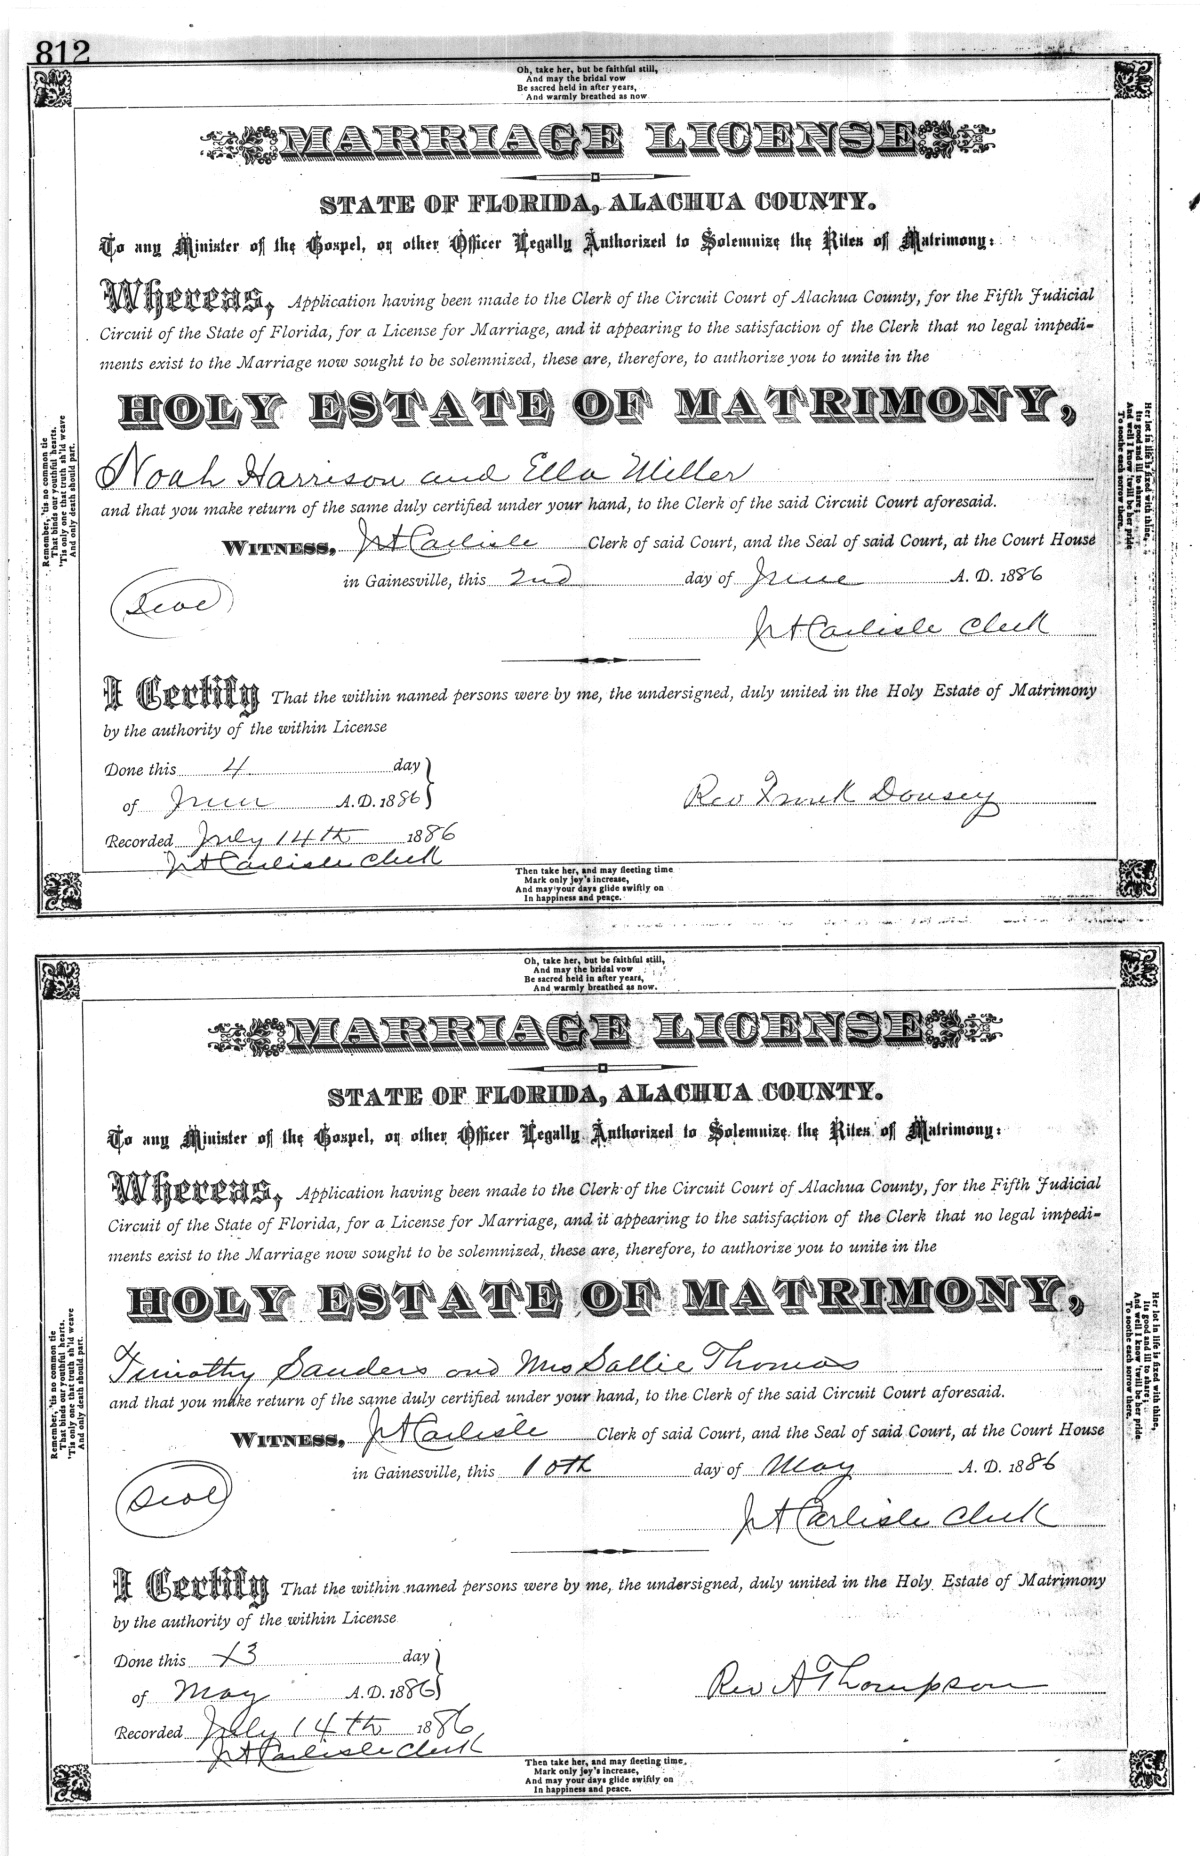 812
Oh, take her, but be faithful still,
And may the bridal vow
Be sacred held in after years,
And warmly breathed as now
MARRIAGE LICENSE
STATE OF FLORIDA, ALACHUA COUNTY.
To any Minister of the Gospel, or other Officer Legally Authorized to Solemnize the Rites of Matrimony:
Whereas, Application having been made to the Clerk of the Circuit Court of Alachua County, for the Fifth Judicial
Circuit of the State of Florida, for a License for Marriage, and it appearing to the satisfaction of the Clerk that no legal impedi-
ments exist to the Marriage now sought to be solemnized, these are, therefore, to authorize you to unite in the
HOLY ESTATE OF MATRIMONY,
Noah Harrison and Ella Miller
and that you make return of the same duly certified under your hand, to the Clerk of the said Circuit Court aforesaid.
WITNESS, J A Carlisle Clerk of said Court, and the Seal of said Court, at the Court House
in Gainesville, this 2nd day of June A. D. 1886
Seal
J A Carlisle Clerk
I Certify That the within named persons were by me, the undersigned, duly united in the Holy Estate of Matrimony
by the authority of the within License
Done this 4 day
of June A. D. 1886
Rev Frank
Recorded July 14th 1886
J A Carlisle Clerk
Remember, 'tis no common tie
That binds our youthful hearts.
'Tis only one that truth sh'ld weave
And only death should part.
Her lot in life is fixed with thine,
Its good and ill to share;
And well I know 'twill be her pride
To soothe each sorrow there.
Then take her, and may fleeting time
Mark only joy's increase,
And may your days glide swiftly on
In happiness and peace.
Oh, take her, but be faithful still,
And may the bridal vow
Be sacred held in after years,
And warmly breathed as now.
MARRIAGE LICENSE
STATE OF FLORIDA, ALACHUA COUNTY.
To any Minister of the Gospel, or other Officer Legally Authorized to Solemnize the Rites of Matrimony:
Whereas, Application having been made to the Clerk of the Circuit Court of Alachua County, for the Fifth Judicial
Circuit of the State of Florida, for a License for Marriage, and it appearing to the satisfaction of the Clerk that no legal impedi-
ments exist to the Marriage now sought to be solemnized, these are, therefore, to authorize you to unite in the
HOLY ESTATE OF MATRIMONY,
Timothy Sanders and Mrs Sallie Thomas
and that you make return of the same duly certified under your hand, to the Clerk of the said Circuit Court aforesaid.
WITNESS, J A Carlisle Clerk of said Court, and the Seal of said Court, at the Court House
in Gainesville, this 10th day of May A. D. 1886
Seal
J A Carlisle Clerk
I Certify That the within named persons were by me, the undersigned, duly united in the Holy Estate of Matrimony
by the authority of the within License
Done this 13 day
of May A. D. 1886
Rev A Thompson
Recorded July 14th 1886
J A Carlisle Clerk
Remember, 'tis no common tie
That binds our youthful hearts.
'Tis only one that truth sh'ld weave
And only death should part.
Her lot in life is fixed with thine,
Its good and ill to share;
And well I know 'twill be her pride
To soothe each sorrow there.
Then take her, and may fleeting time
Mark only joy's increase,
And may your days glide swiftly on
In happiness and peace.